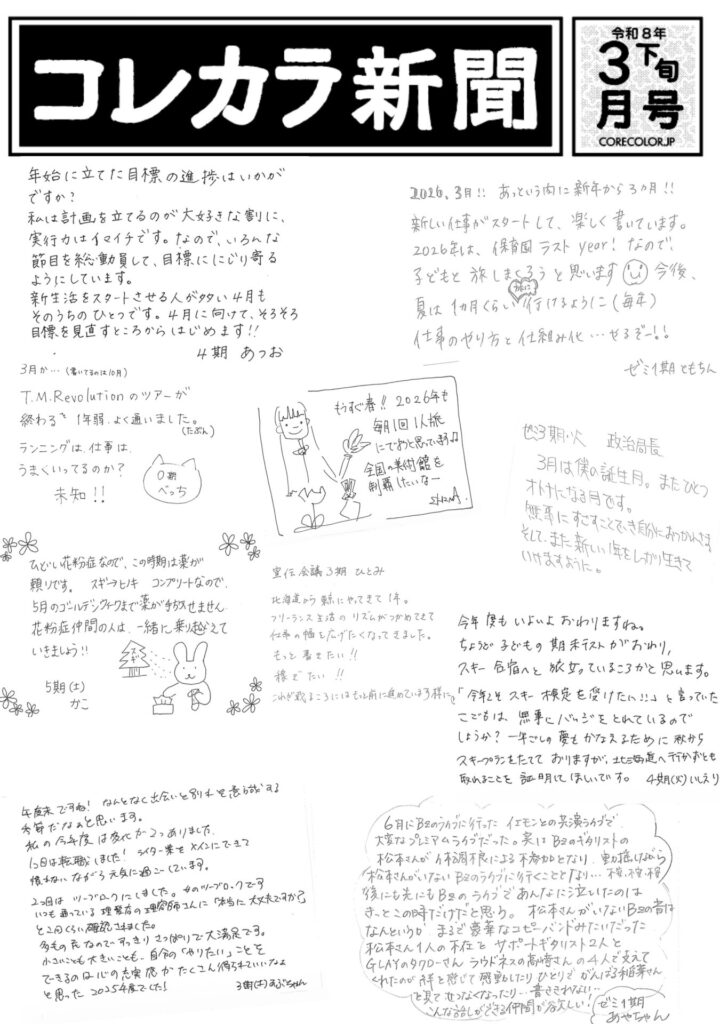 コレカラ新聞
令和8年
3月
下旬号
CORECOLOR.JP
年始に立てた目標の進捗はいかが
ですか？
私は計画を立てるのが大好きな割に、
実行力はイマイチです。なので、いろんな
節目を総動員して、目標ににじり寄る
ようにしています。
新生活をスタートさせる人が多い4月も
そのうちのひとつです。4月に向けて、そろそろ
目標を見直すところからはじめます!!
4期 あつお
2026、3月!! あっという間に新年から3ヵ月!!
新しい仕事がスタートして、楽しく書いています。
2026年は、保育園ラストyear! なので、
子どもと旅しまくろうと思います 今後、
夏は1カ月くらい旅に行けるように(毎年)
仕事のやり方と仕組み化…せるぞー!!
ゼミ1期 ともちん
3月か…(書いてるのは10月)
T.M.Revolutionのツアーが
終わるで1年弱、よく通いました。
(たぶん)
ランニングは、仕事は、
うまくいってるのか？
未知!!
0期
べっち
もうすぐ春!! 2026年も
毎月1回1人旅
にでおと思っています♫
全国の美術館を
制覇したいなー
ゼミ3期・火 政治局長
3月は僕の誕生月。またひとつ
オトナになる月です。
無事にすごすことができ自分におつかれさま
そして、また新しい1年をしっかり生きて
いけますように。
ひどい花粉症なので、この時期は薬が
頼りです。 スギ→ヒノキ コンプリートなので、
5月のゴールデンウィークまで薬が手放せません
花粉症仲間の人は、一緒に乗り越えて
いきましょう!!
スギ
5期(土)
かこ
宣伝会議3期 ひとみ
北海道から東京にやってきて1年。
フリーランス生活のリズムがつかめてきて
仕事の幅を広げたくなってきました。
もっと書きたい!!
稼ぎたい!!
これが載るころにはもっと前に進めています様に
今年度もいよいよおわりますね。
ちょうど子どもの期末テストがおわり、
スキー合宿へと旅立っているころかと思います。
「今年こそスキー検定を受けたい!!」と言っていた
こどもは、無事にバッジをとれているので
しょうか？一年ごしの夢をかなえるために秋から
スキープランをたてておりますが、北海道へ行かずとも
取れることを証明してほしいです。 4期(火)いしえり
年度末ですね! なんとなく出会いと別れを意識する
季節だなぁと思います。
私の今年度は変化が2つありました。
1つ目は転職しました! ライター業をメインにできて
慌ただしいながらも元気に過ごしています。
2つ目はツーブロックにしました。女のツーブロックです
いつも通っている理髪店の理容師さんに「本当に大丈夫ですか」
と2回くらい確認されました。
多毛の民なのですっきりさっぱりで大満足です。
小さいことも大きいことも、自分の「やりたい」ことを
できるのは心の充実度がたくさん得られていいなぁ
と思った2025年度でした!
3期(木)まるちゃん
6月にB'zのライブに行った イエモンとの共演ライブで
大変なプレミアムライブだった。実はB'zのギタリストの
松本さんが体調不良による不参加となり、動揺しながら
松本さんがいないB'zのライブに行くこととなり…
後にも先にもB'zのライブであんなに泣いたのは
きっとこの時だけだと思う。 松本さんがいないB'zの音は
なんというか まるで豪華なコピーバンドみたいだった
松本さん1人の不在とサポートギタリスト2人と
GLAYのタクローさん ラウドネスの高崎さんの4人で支えて
くれたのが絆を感じて感動したり ひとりでがんばる稲葉さん
を見てせつなくなったり…書ききれない…
こんな話ができる仲間が欲しい!
ゼミ1期
あやちゃん